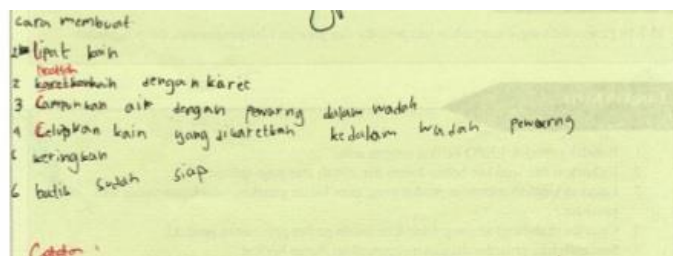 cara membuat
1 Lipat kain
Ikatlah
2 dengan karet
3 Campurkan air dengan pewarng dalam wadah
4 Celupkan kain yang dikaretkan kedalam wadah pewarng
5 keringkan
6 batik sudah siap